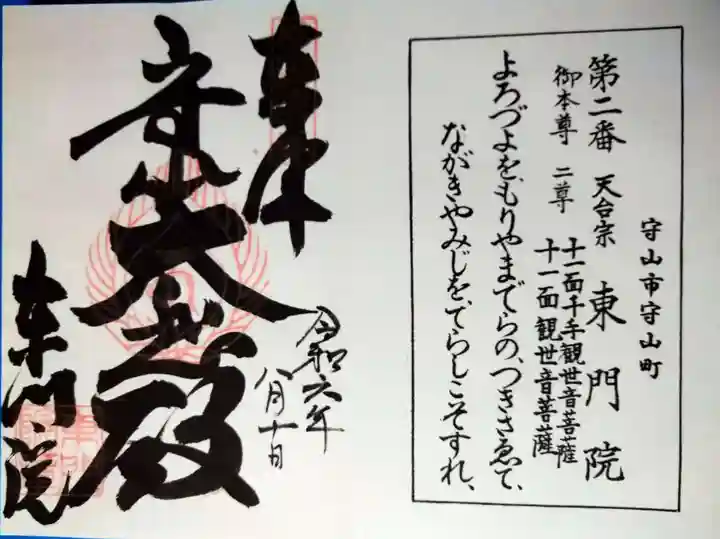 守山市守山町
第二番 天台宗 東門院
御本尊 二尊 十一面千手観世音菩薩
十一面観世音菩薩
よろづよを、もりやまでらの、つきさゑて、
ながきやみじを、てらしこそすれ、
奉拝
大悲殿
令和六年
八月十日
東門院